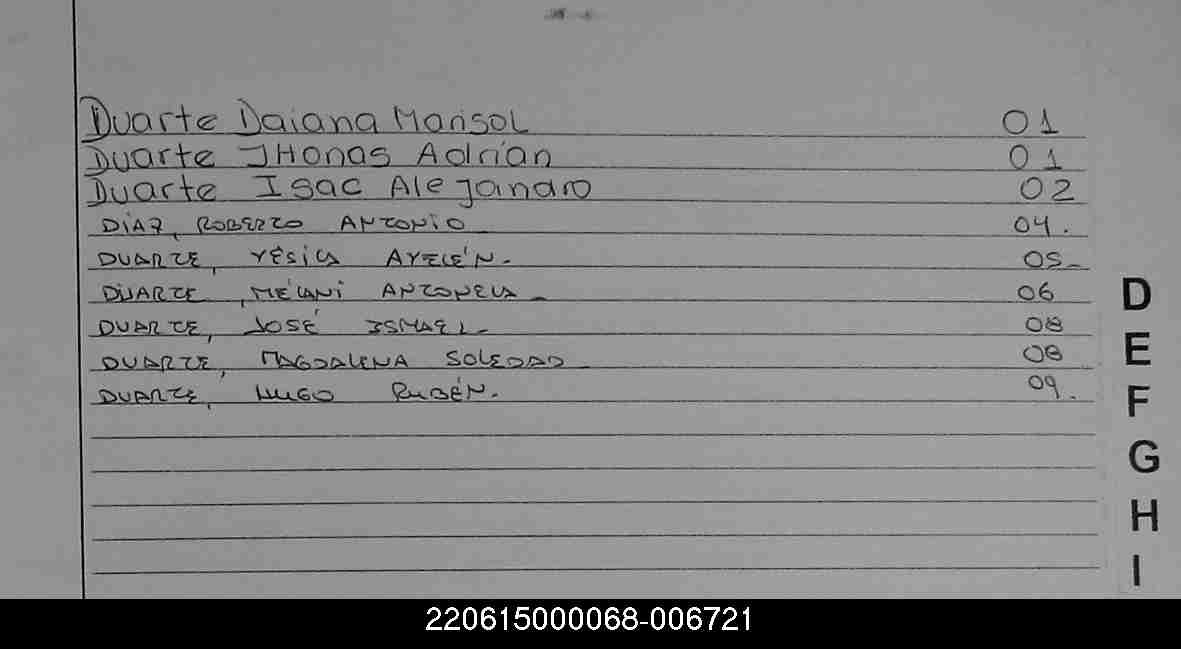 Duarte Daiana Marisol 01
Duarte JHonas Adrian 01
Duarte Isac Alejandro 02
DÍAZ, ROBERTO ANTONIO 04.
DUARTE, YÉSICA AYELÉN. 05-
DUARTE, MÉLANI ANTONELA - 06
DUARTE, JOSÉ ISMAEL - 08
DUARTE, MAGDALENA SOLEDAD 08
DUARTE, HUGO RUBÉN. 09.
D
E
F
G
H
I
220615000068-006721